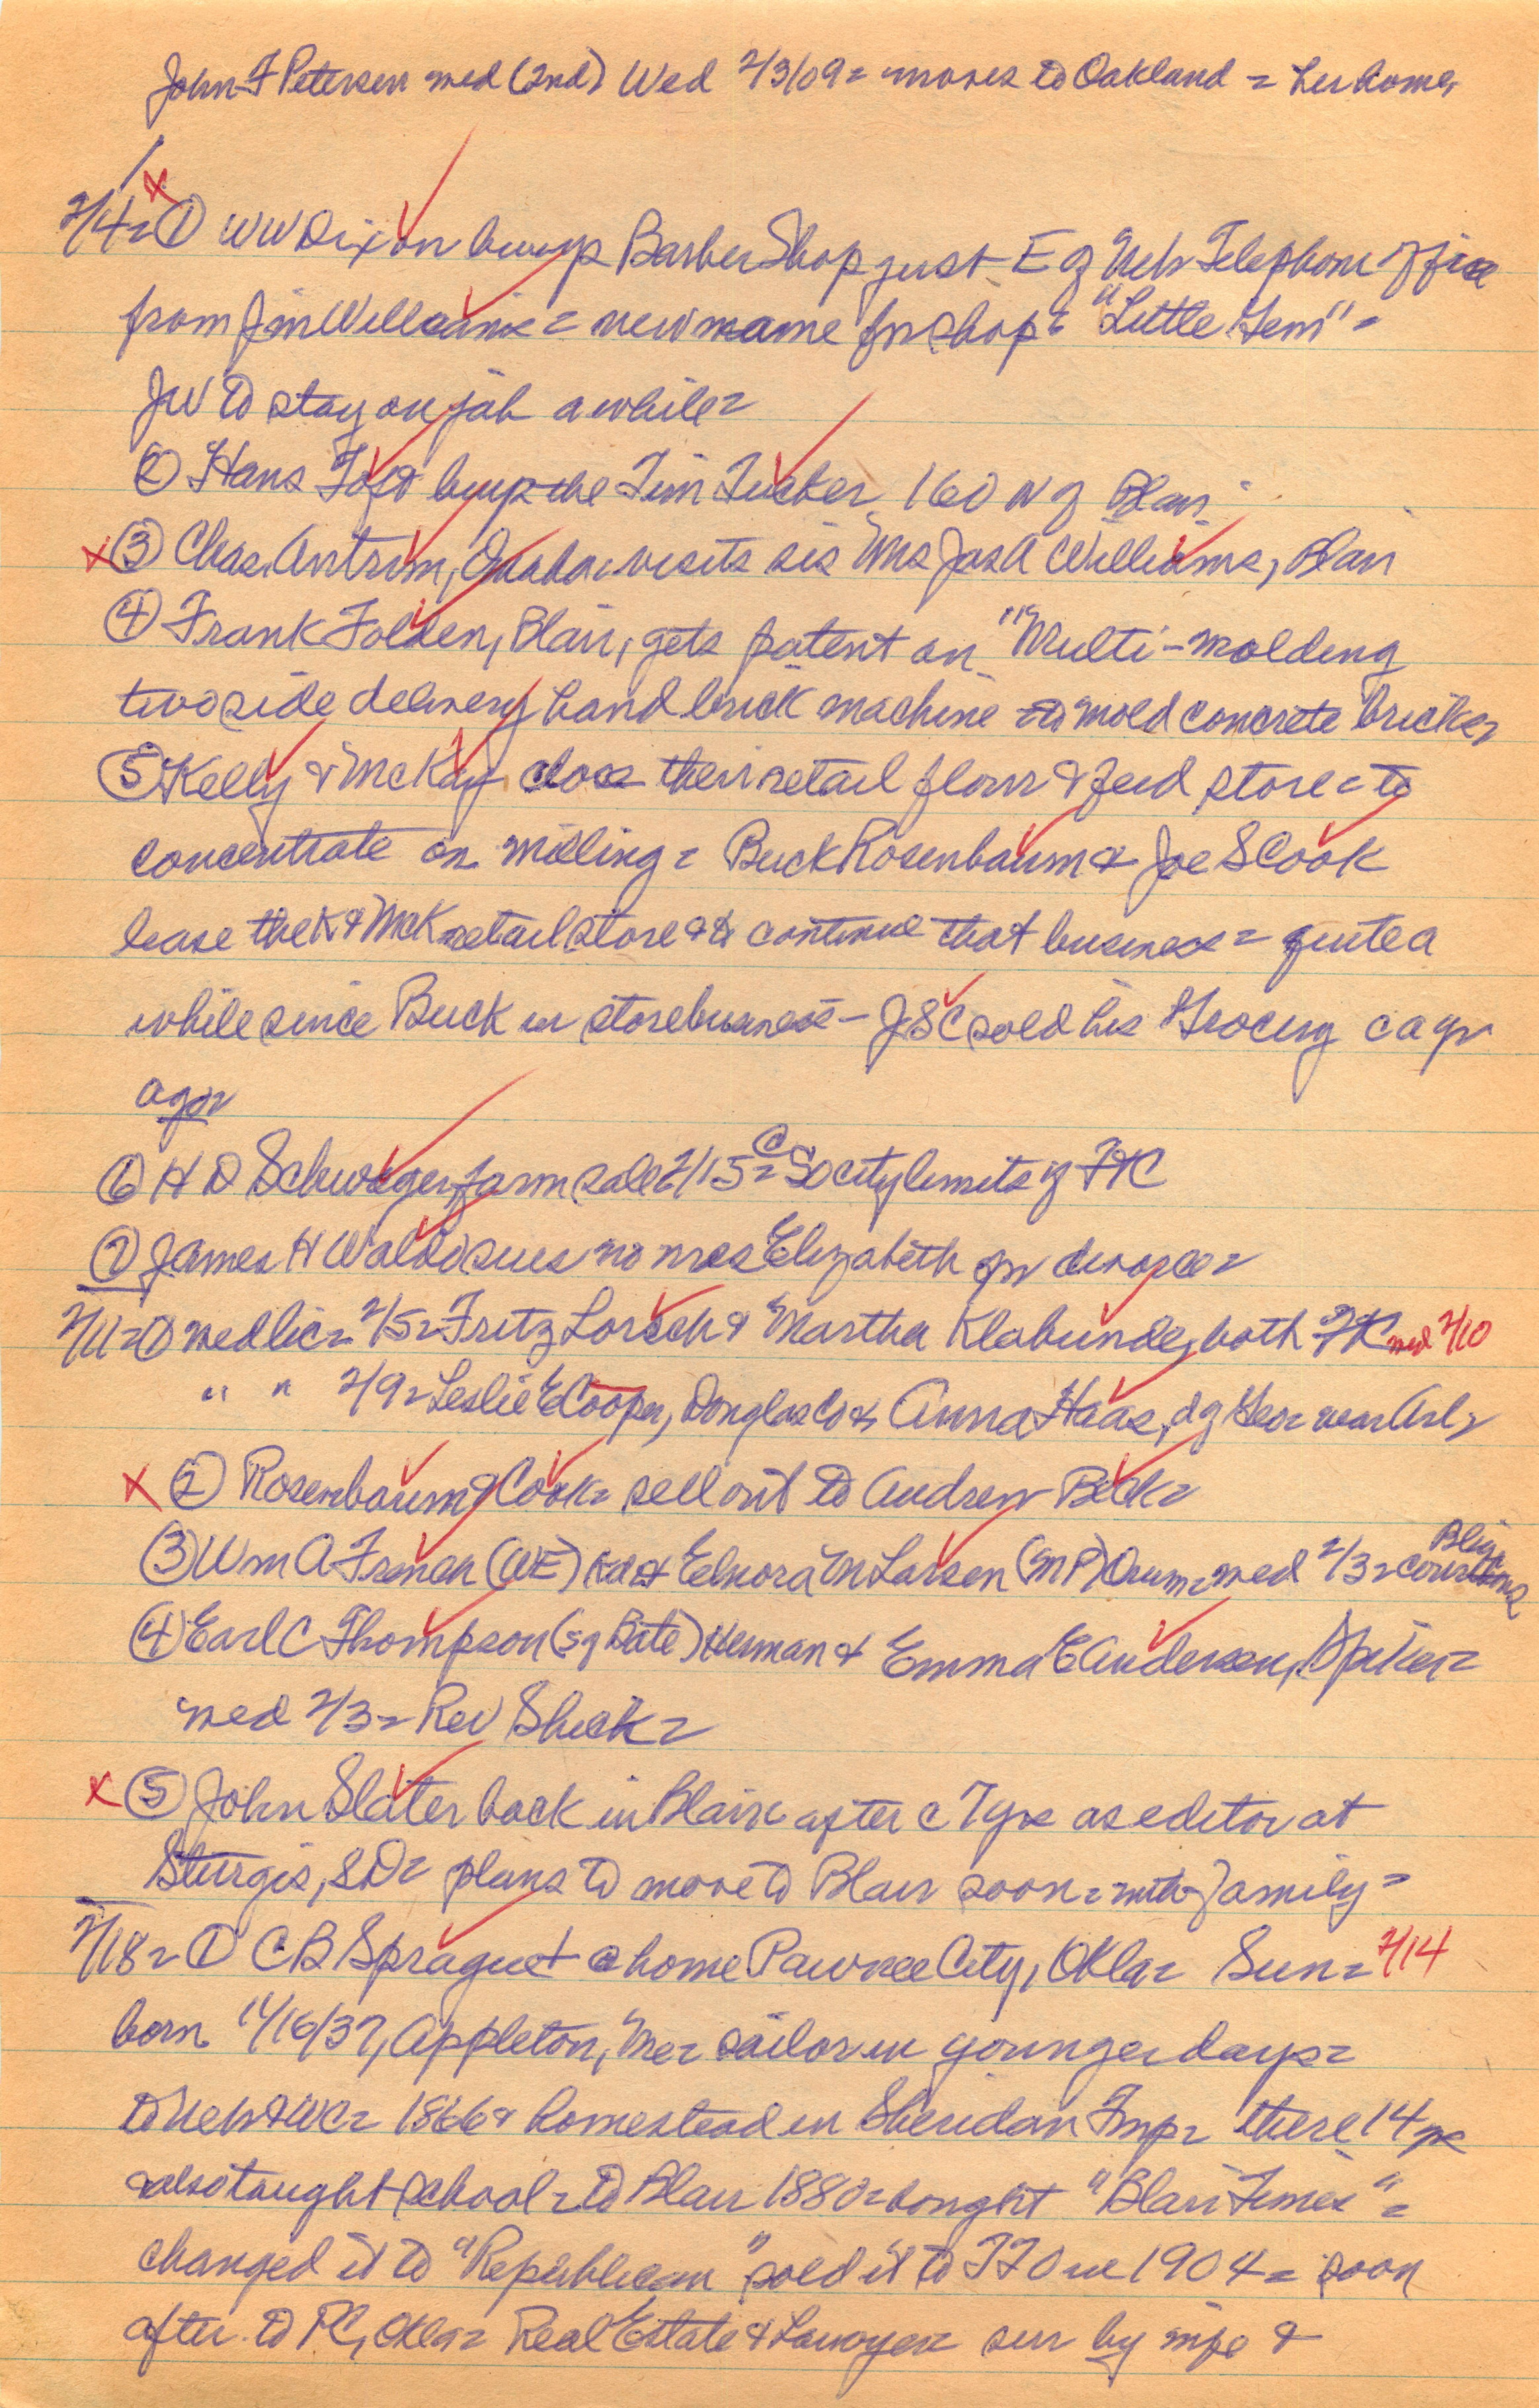 John F Petersen med (2nd) Wed 2/3/09 = moves to Oakland = her home,
2/4 = ① WW Dixon buys Barber Shop just E of Neb Telephone Office
from Jim Williams = new name for shop = "Little Gem" =
JW to stay on job a while =
② Hans Toft buys the Tim Tucker 160 N of Blair
x ③ Chas Antrim, Omaha visits sis Mrs Jas A Williams, Blair
④ Frank Folden, Blair, gets patent on "Multi-molding
two side delivery hand brick machine to mold concrete bricks =
⑤ Kelly & McKay close their retail flour & feed store = to
concentrate on milling = Buck Rosenbaum & Joe S Cook
lease the K & McK retail store & to continue that business = quite a
while since Buck in store business - JSC sold his Grocery c a yr
ago =
⑥ H D Schwager farm sale 2/15 = @ So city limits of FtC
⑦ James H Waldo sues Elizabeth for divorce =
2/11 = ① med lic = 2/5 = Fritz Lorsch & Martha Klabunde, both FtC med 2/10
" " 2/9 = Leslie E Cooper, Douglas Co & Anna Haas, d of Geo = near Arl =
x ② Rosenbaum & Cook = sell out to Andrew Beck =
③ Wm A French (WE) Kd & Elnora M Larsen (MP) Orum = med 2/3 =
④ Earl C Thompson (s of Bate) Herman & Emma E Andersen, Spiker =
med 2/3 = Rev Sheck =
x ⑤ John Slater back in Blair after c 7 yrs as editor at
Sturgis, SD = plans to move to Blair soon = with family =
2/18 = ① C B Sprague + @ home Pawnee City, Okla = Sun = 2/14
born 11/16/37, Appleton, Me = sailor in younger days =
to Neb & WC = 1866 & homestead in Sheridan Twp = there 14 yrs
& also taught school = to Blair 1880 = bought "Blair Times" =
changed it to "Republican" sold it to TTO in 1904 = soon
after to PC, Okla = Real Estate & Lawyer = sur by wife &